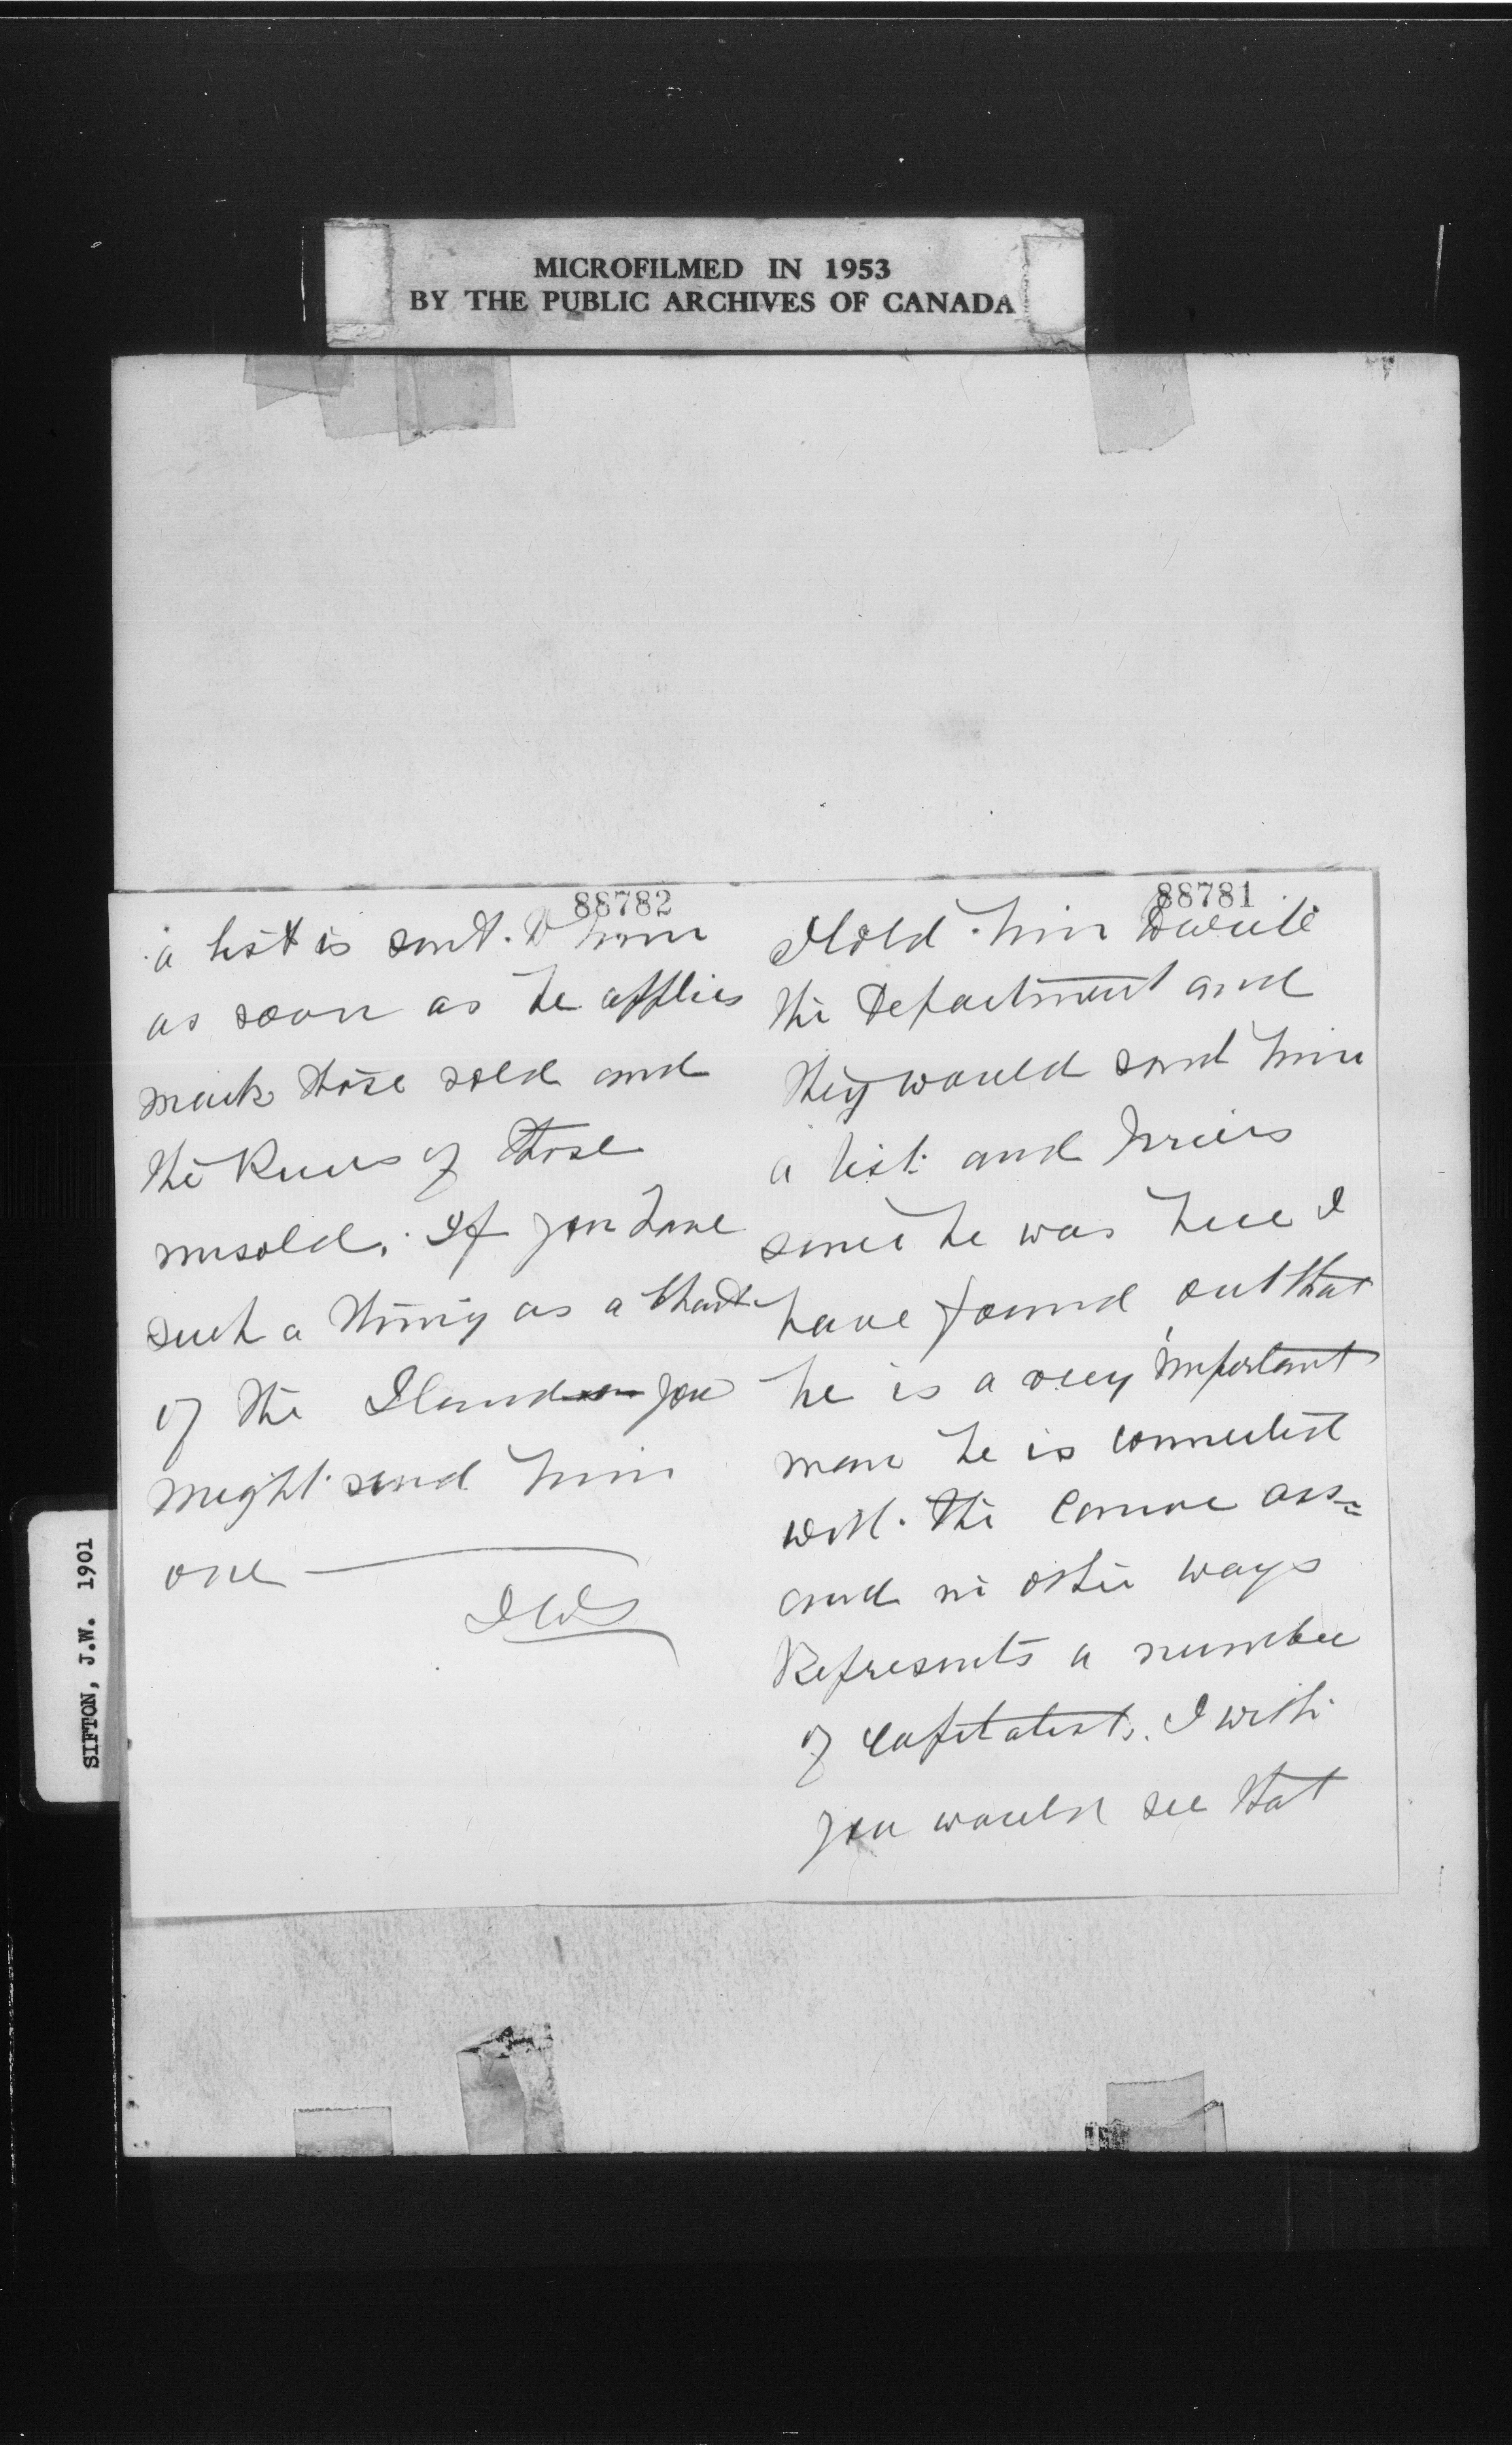 MICROFILMED IN 1953
BY THE PUBLIC ARCHIVES OF CANADA
88781
I told him to write
the Department and
they would send him
a list and prices
since he was here I
have found out that
he is a very important
man he is connected
with the Canoe ass=
and in other ways
Represents a number
of capitalists. I wish
you would see that
88782
a list is sent to him
as soon as he applies
mark those sold and
the Prices of those
unsold. If you have
such a thing as a chart
of the Island you
might send him
one
JWS
SIFTON, J.W. 1901